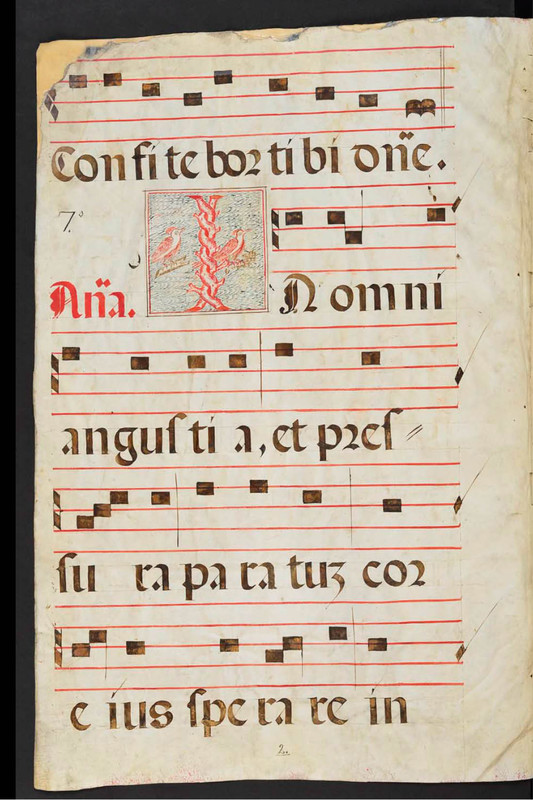 Confitebor tibi dn̄e.
7.º
Añã. IN omni
angusti a, et pres
su ra paratuʒ cor
e ius sperare in
2.